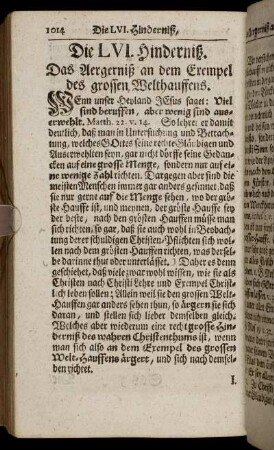 1014 Die LVI. Hinderniß.
Die LVI. Hinderniß.
Das Aergerniß an dem Exempel
des grossen Welthauffens.
WEnn unser Heyland JEsus saget: Viel
sind beruffen, aber wenig sind aus-
erwehlt. Matth. 22. v. 14. So lehret er damit
deutlich, daß man in Untersuchung und Betrach-
tung, welches GOttes seine rechte Gläubigen
und Auserwehlten seyn, gar nicht dörffe seine Gedan-
cken auf eine grosse Menge, sondern nur auf ei-
ne wenigte Zahl richten. Dargegen aber sind die
meisten Menschen immer gar anders gesinnet, daß
sie nur gerne auf die Menge sehen, wo der grös-
ste Hauffe ist, und meynen, der größte Hauffe sey
der beste, nach den grösten Hauffen müsse man
sich richten, so gar, daß sie auch wohl in Beobach-
tung derer schuldigen Christen-Pflichten sich wol-
len nach dem grösten Hauffen richten, was derselbe
be darinne thut oder unterlässet. Daher es denn
geschiehet, daß viele zwar wohl wissen, wie sie als
Christen nach Christi Lehre und Exempel Christ-
lich leben sollen; Allein weil sie den grossen Welt-
Hauffen gar anders sehen thun, so ärgern sie sich
daran, und stellen sich lieber demselben gleich.
Welches aber wiederum eine recht grosse Hin-
derniß des wahren Christenthums ist, wenn
man sich also an dem Exempel des grossen
Welt-Hauffens ärgert, und sich nach demsel-
ben richtet.
I.